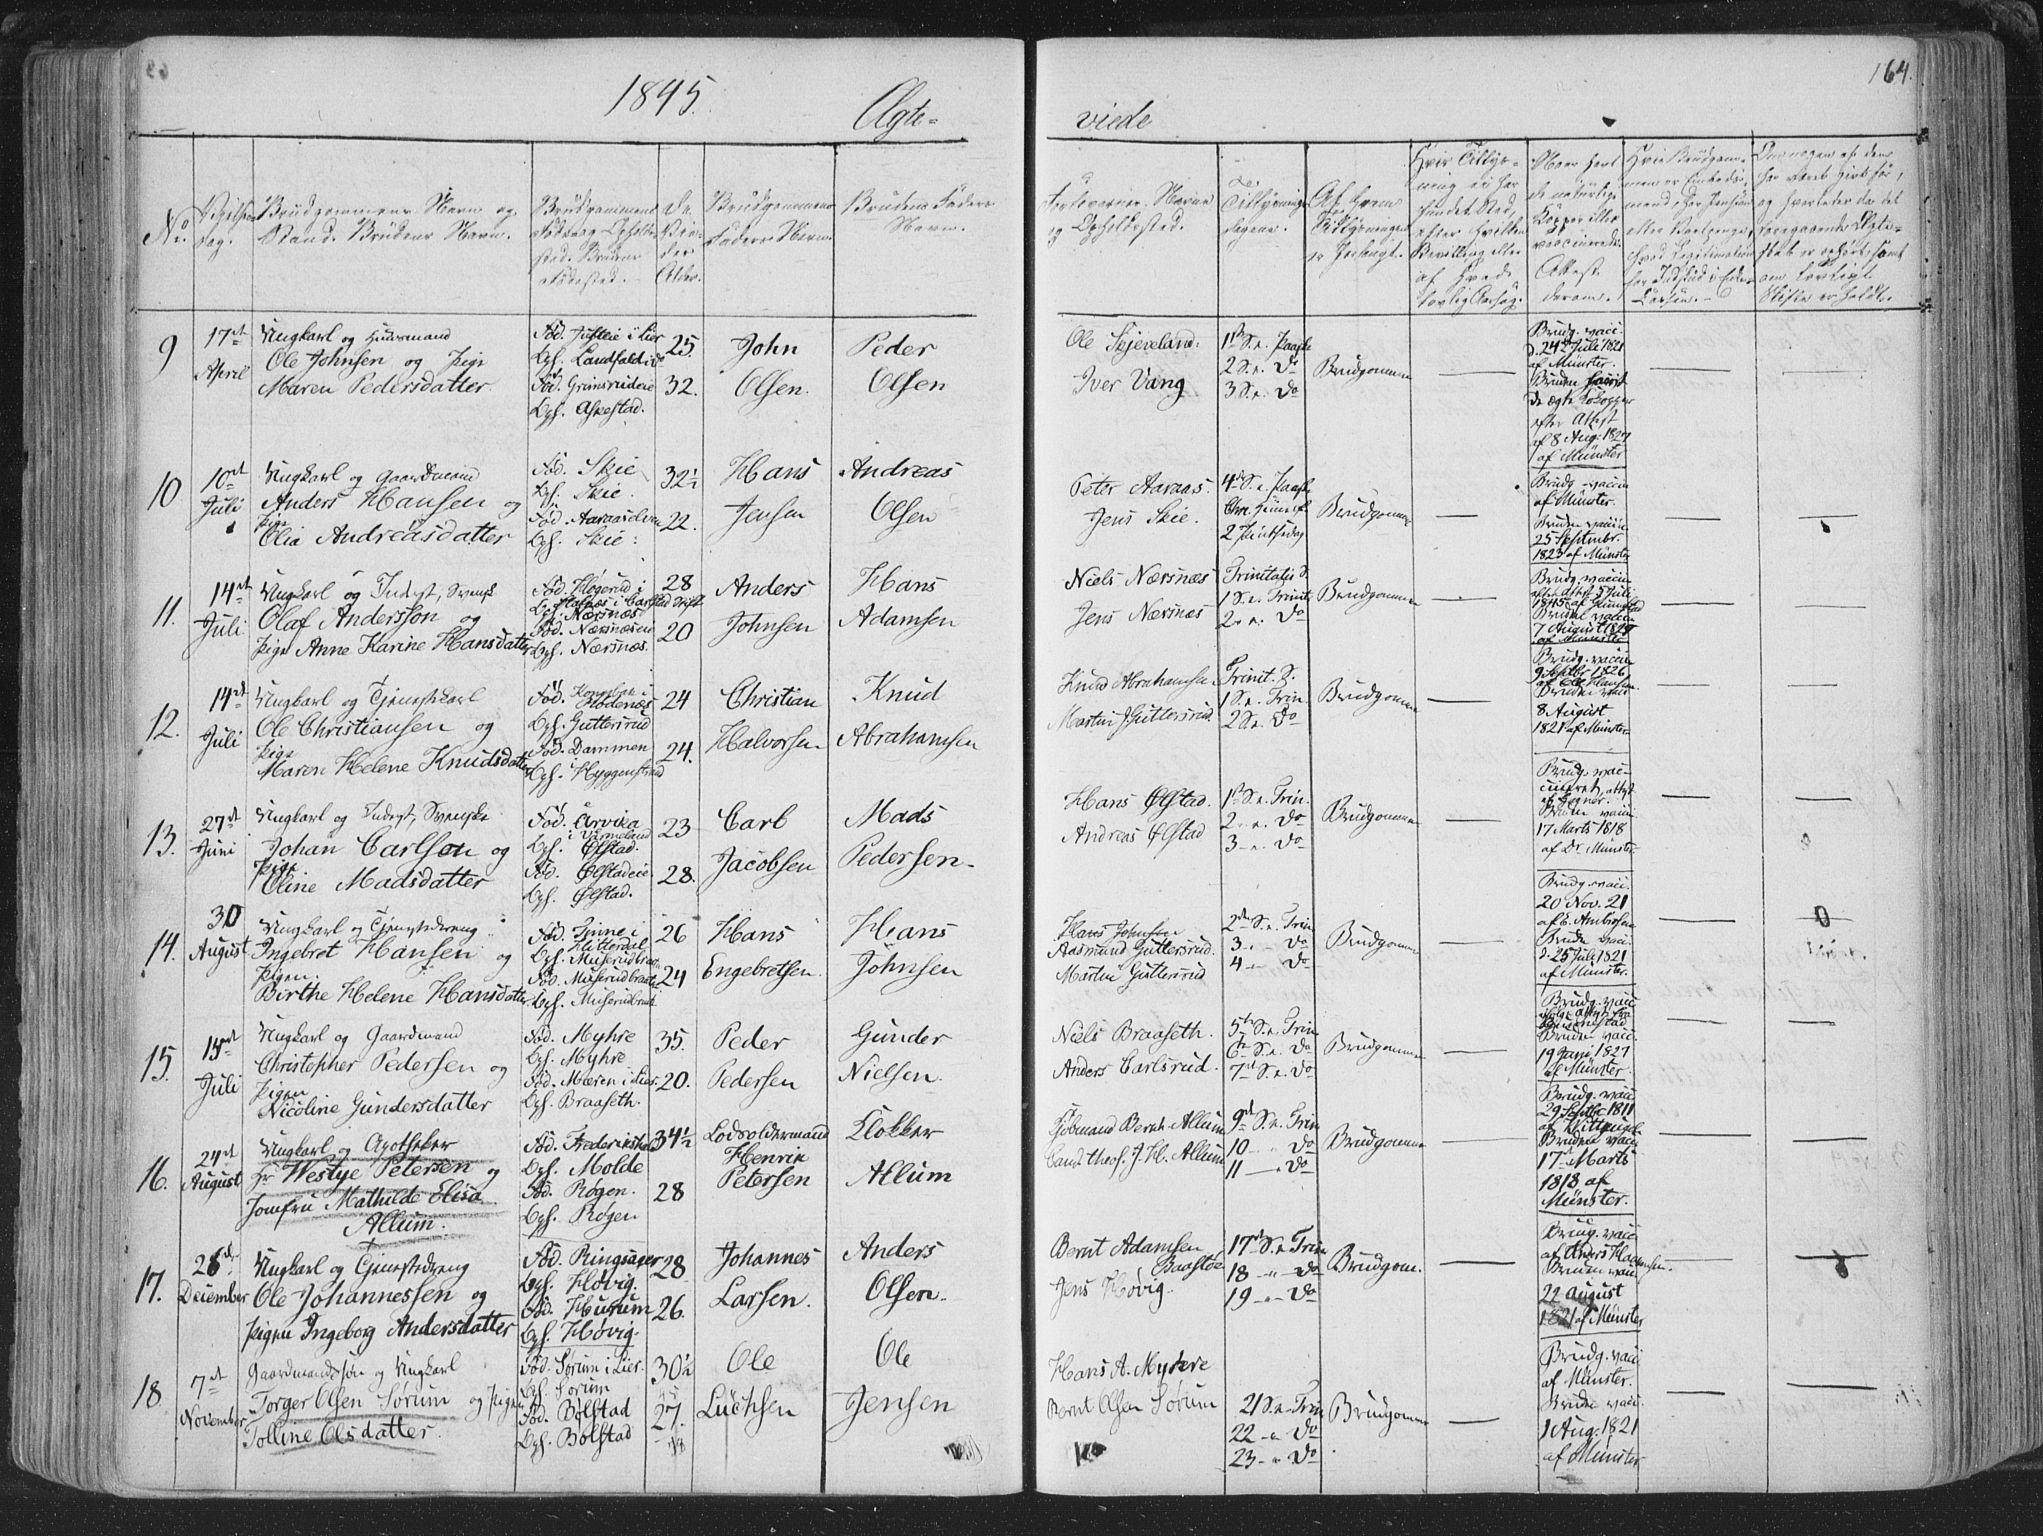 1845.
Ægte-
viede
164.
No.
Vielses dag.
Brudgommens Navn og Stand. Brudens Navn.
Brudgommens Fødested og Opholdssted. Brudens
Brudgommens Faders Navn.
Brudens Faders Navn.
Forlovernes Navne og Opholdssted.
Tillysnings dagene.
Af hvem Tillysningen er forlangt.
9
17de April
Ungkarl og Huusmand
Ole Johnsen og Pige
Maren Pedersdatter
Fød. Justeie i Lier
Oph. Landfald i do
Fød. Grimsrudeie
Oph. Askestad.
25.
32.
John Olsen.
Peder Olsen
Ole Skjeveland:
Iver Vang
1ste S. e. Paaske
2 S. e. do
3 S. e. do
Brudgommen
Brudg. vacc.
d. 24de Juli 1821
af Münster.
Bruden havt
de ægte Kokopper
efter Attest
af 8 Aug: 1827
af Münster
10
10de Juli
Ungkarl og Gaardmand
Anders Hansen og
Pige
Olia Andreasdatter
Fød. Skie
Oph. Skie.
Fød. Aaraaselven
Oph. Skie:
32½
22.
Hans Jensen
Andreas Olsen
Peter Aaraas.
Jens Skie.
4de S. e. Paaske
Chr. Himmelf.
2 Pintsedag
Brudgommen
Brudg. vaccin
af Münster.
Bruden vaccin.
25 Septembr.
1823 af Münster
11.
14de Juli
Ungkarl og Inderst, Svensk
Olaf Andersson og
Pige Anne Karine Hansdatter
Fød. Høgerud i
Oph. Nærsnæs
Fød. Nærsnæseie
Oph. Nærsnæs.
28
20
Anders Johnsen
Hans Adamsen
Niels Nærsnæs
Jens Nærsnæs
Trinitatis S.
1 S. e. Trinit.
2 - e. do
Brudgommen
Brudg. vaccin
Bruden vaccin
7 August 1827
af Münster
12.
14de Juli
Ungkarl og Tjenestekarl
Ole Christiansen og
Pige
Maren Helene Knudsdatter
Oph. Guttersrud
Fød. Dammen
Oph. i Hyggenstrand
24
24.
Christian Halvorsen
Knud Abrahamsen
Knud Abrahamsen
Martin Guttersrud
Trinit. S.
1 S. e. Trin.
2 S. e. do
Brudgommen
Brudg. vaccin
9 Septbr 1826
af Ole Hansen
Bruden vacc
8 August
1821 af Münster
13.
27de Juni
Ungkarl og Inderst, Svenske
Johan Carlson og
Pige
Oline Madsdatter
Fød. Arvika
i Värmeland
Oph. Ølstad.
Fød. Ølstadeie
Oph. Ølstad.
23
28.
Carl Jacobsen
Mads Pedersen
Hans Ølstad.
Andreas Ølstad
1ste S. e. Trin.
2 - e. do
3 - e. do
Brudgommen
Brudg. vac-
cineret, attest
Bruden vaccin
17 Marts 1818
af Dr Münster
14.
30 August
Ungkarl og Tjenestedreng
Ingebret Hansen og
Pigen
Birthe Helene Hansdatter
Fød. Tinne i
Hitterdal
Oph. Muserudbraaten
Fød. Muserudbraaten
Oph. Muserudbraaten
26
24
Hans Engebretsen.
Hans Johnsen
Hans Johnsen
Aasmund Guttersrud.
Martin Guttersrud
2den S. e. Trin
3 - - do
4 - - do
Brudgommen
Brudg. vacc.
20 Nov. 21
Bruden vacc
d. 25 Juli 1821
af Münster.
15.
15de Juli
Ungkarl og Gaardmand
Christopher Pedersen og
Pigen
Nicoline Gundersdatter
Fød. Myhre
Oph. Myhre
Fød. Meren i Lier
Oph. Braaseth.
35.
20.
Peder Pedersen
Gunder Nielsen.
Niels Braaseth.
Anders Carlsrud.
5te S. e. Trin
6te S. e. do
7de S. e. do
Brudgommen
Brudg. vacc
Bruden vacc.
19 Juni 1827
af Münster.
16.
24de August
Ungkarl og Apotheker
Hr Westye Petersen og
Jomfru Mathilde Elisa
Allum.
Fød. Frederikstad
Oph. Molde
Fød. Røgen.
Oph. Røgen
34½
28
Lodsoldermand
Henrik
Petersen
Klokker
Allum
Bernt Allum
Cand. theol. J. H. Allum
9de S. e. Trin
10 - " do
11 - " do
Brudgommen
Brudg. vacc
29 Septbr 1811
Bruden vacc
17de Marts
1818 af
Münster.
17.
26de December
Ungkarl og Tjenestedreng
Ole Johannessen og
Pigen Ingeborg Andersdatter
Fød. Ringsager
Oph. Høvig.
Fød. Hurum
Oph. Høvig.
28
26.
Johannes Larsen.
Anders Olsen.
Bernt Adamsen
Baastøe
Jens Høvig.
17de S. e. Trin
18 - " - do
19 - " - do
Brudgom.
Brudg. vacc
af Anders Haagensen.
Bruden vacc
22 August
1821 af Münster
18
7de November
Gaardmandssøn og Ungkarl
Torger Olsen Sørum og Pigen
Tolline Olsdatter.
Fød. Sørum i Lier.
Oph. Sorum
Fød. Bolstad
Oph. Bolstad
30½
27.
Ole Lüchsen
Ole Jensen
Hans A. Myhre
Bernt Olsen Sorum
21 S. e. Trin
22 - " do
23 - " do
Brudgommen
Brudg. vacc
af Münster.
Bruden vacc.
1 Aug: 1821
af Münster